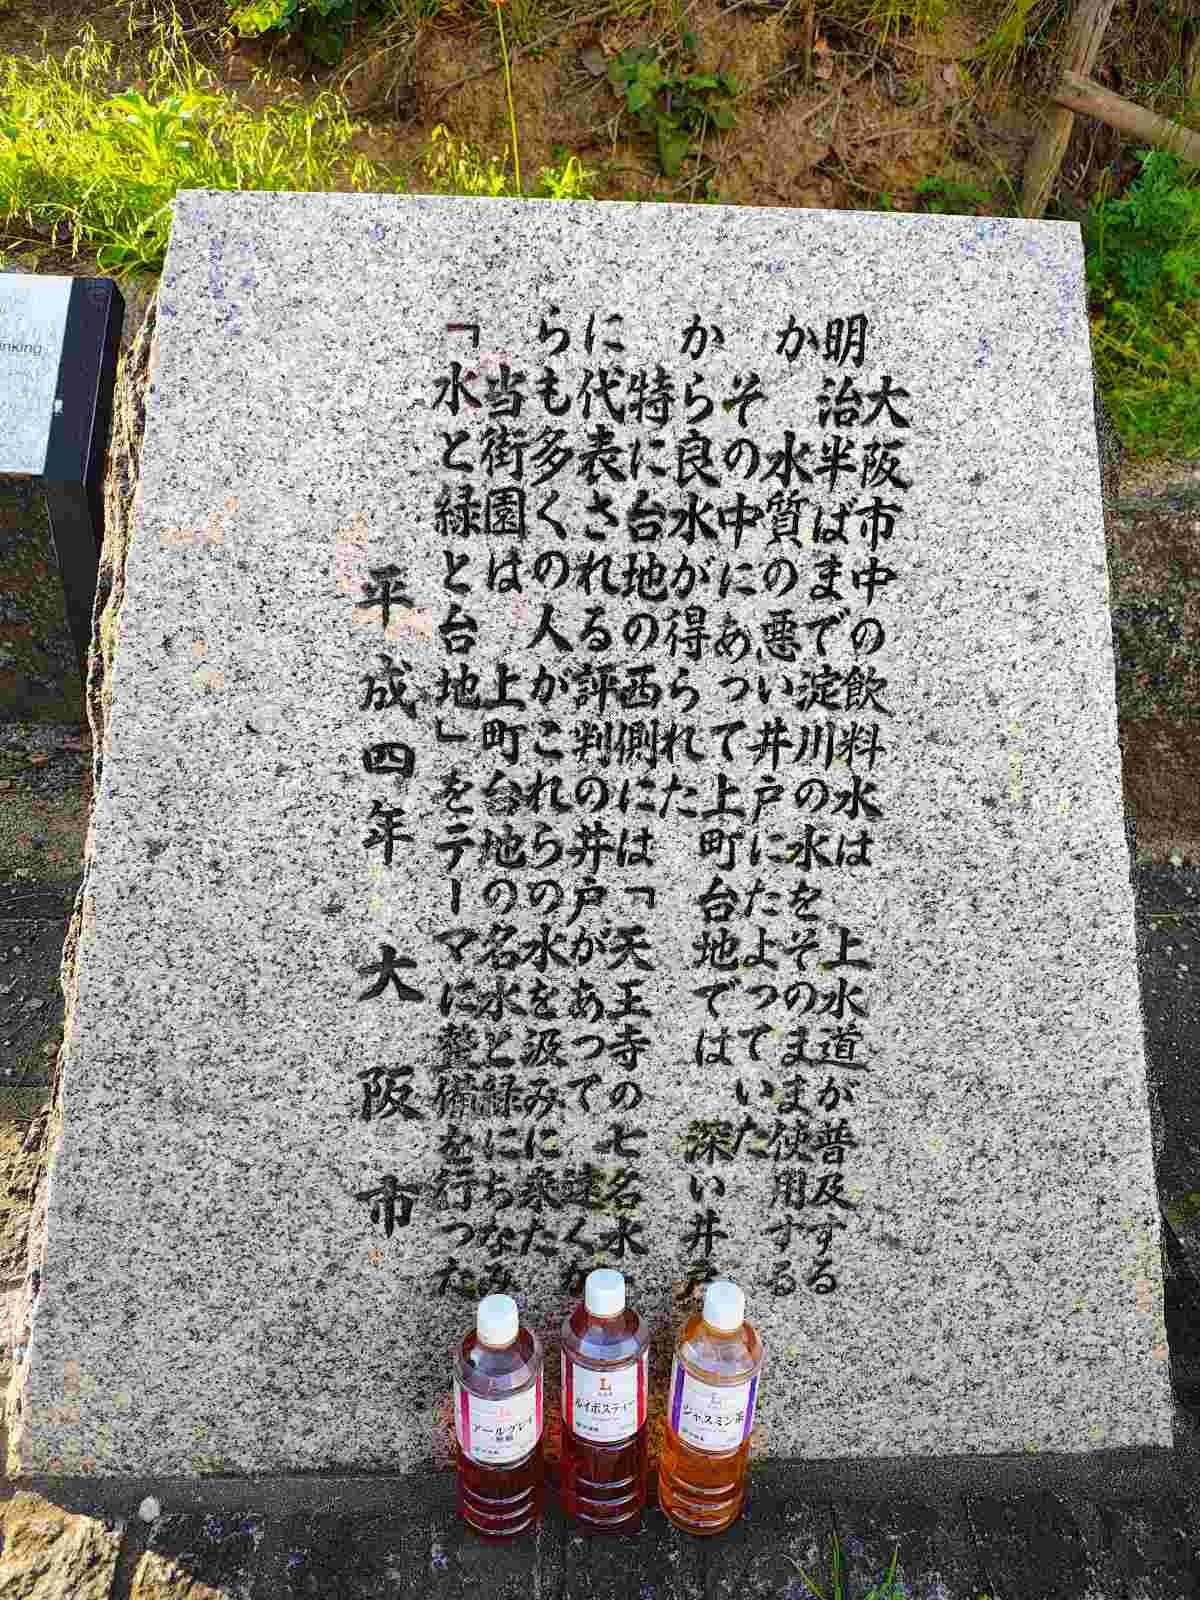 大阪市中の飲料水は 上水道が普及する
明治半ばまで淀川の水をそのまま使用する
か 水質の悪い井戸にたよっていた
その中にあって上町台地では 深い井戸
から良水が得られた
特に台地の西側には「天王寺の七名水」
に代表される評判の井戸があって 遠くか
らも多くの人がこれらの水を汲みに来た
当街園は 上町台地の名水と緑にちなみ
「水と緑と台地」をテーマに整備を行った
平成四年 大阪市
inking
L
アールグレイ
L
ルイボスティー
L
ジャスミン茶